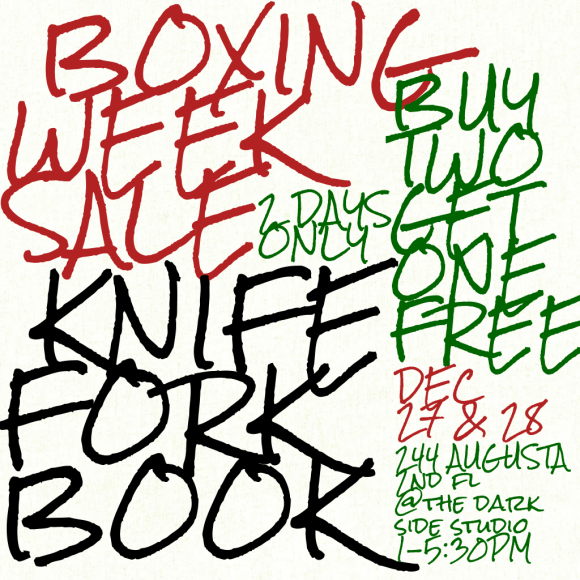 BOXING
WEEK
SALE
2 DAYS
ONLY
BUY
TWO
GET
ONE
FREE
KNIFE
FORK
BOOK
DEC
27 & 28
244 AUGUSTA
2ND FL
@THE DARK
SIDE STUDIO
1-5:30PM